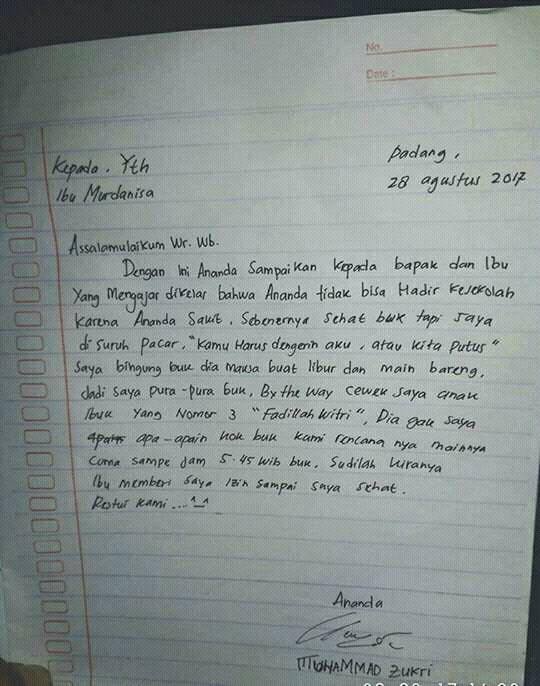 No.
Date :
Kepada. Yth
Ibu Murdanisa
Padang,
28 agustus 2017
Assalamulaikum Wr. Wb.
Dengan Ini Ananda Sampaikan Kepada bapak dan Ibu
Yang Mengajar dikelar bahwa Ananda tidak bisa Hadir Kesekolah
Karena Ananda Sakit. Sebenernya Sehat buk tapi saya
di suruh pacar. "Kamu Harus dengerin aku, atau kita Putus"
Saya bingung buk dia maksa buat libur dan main bareng.
Jadi saya pura-pura buk, By the way Cewek saya anak
Ibuk Yang Nomor 3 "Fadillah Witri", Dia gak saya
apa-apain kok buk kami rencana nya mainnya
Cuma sampe Jam 5.45 Wib buk. Sudilah kiranya
Ibu memberi saya Izin sampai saya Sehat.
Restui Kami ... ^_^
Ananda
MUHAMMAD Zukri